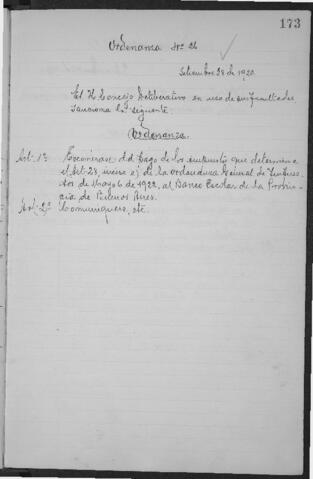 173
Ordenanza Nº 26
Setiembre 28 de 1920
El H. Concejo Deliberativo en uso de sus facultades
sanciona la siguente
Ordenanza.
Art. 1º Exonerase del pago de los impuesto que determina
el Art. 28, inciso e) de la Ordenanza General de Impues
tos de Mayo 6 de 1922, al Banco Escolar de la Provin-
cia de Buenos Aires.
Art. 2º Comuniquese, etc.